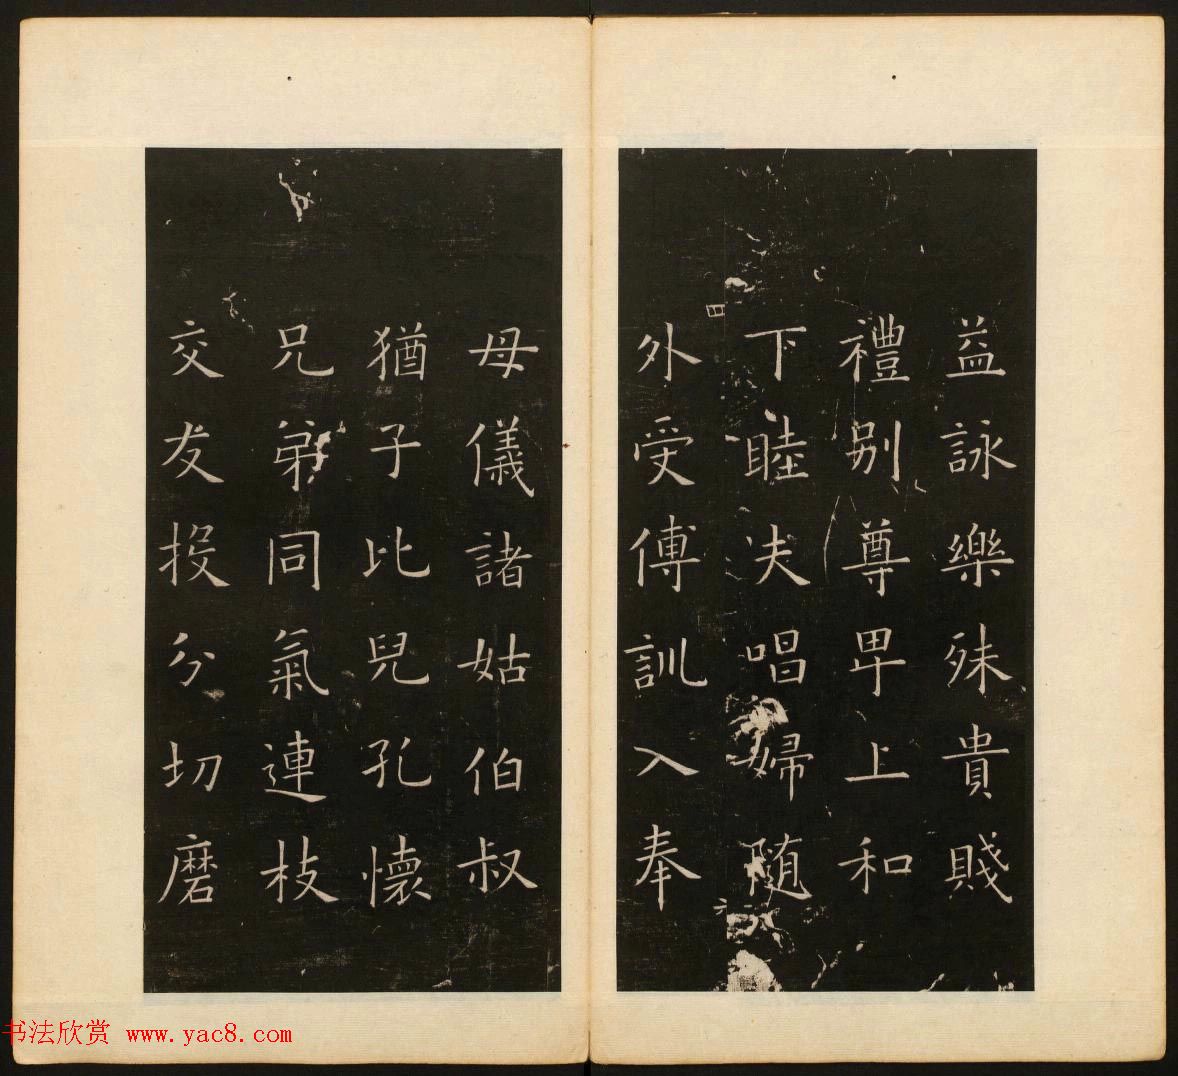 益詠樂殊貴賤
禮別尊卑上和
下睦夫唱婦隨
外受傅訓入奉
母儀諸姑伯叔
猶子比兒孔懷
兄弟同氣連枝
交友投分切磨
書法欣賞 www.yac8.com